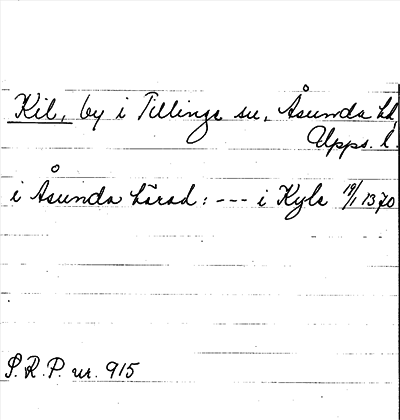 Kil, by i Tillinge sn, Åsunda hd,
Upps. l.
i Åsunda härad: --- i Kyla 19/1 1370
S.R.P. nr. 915